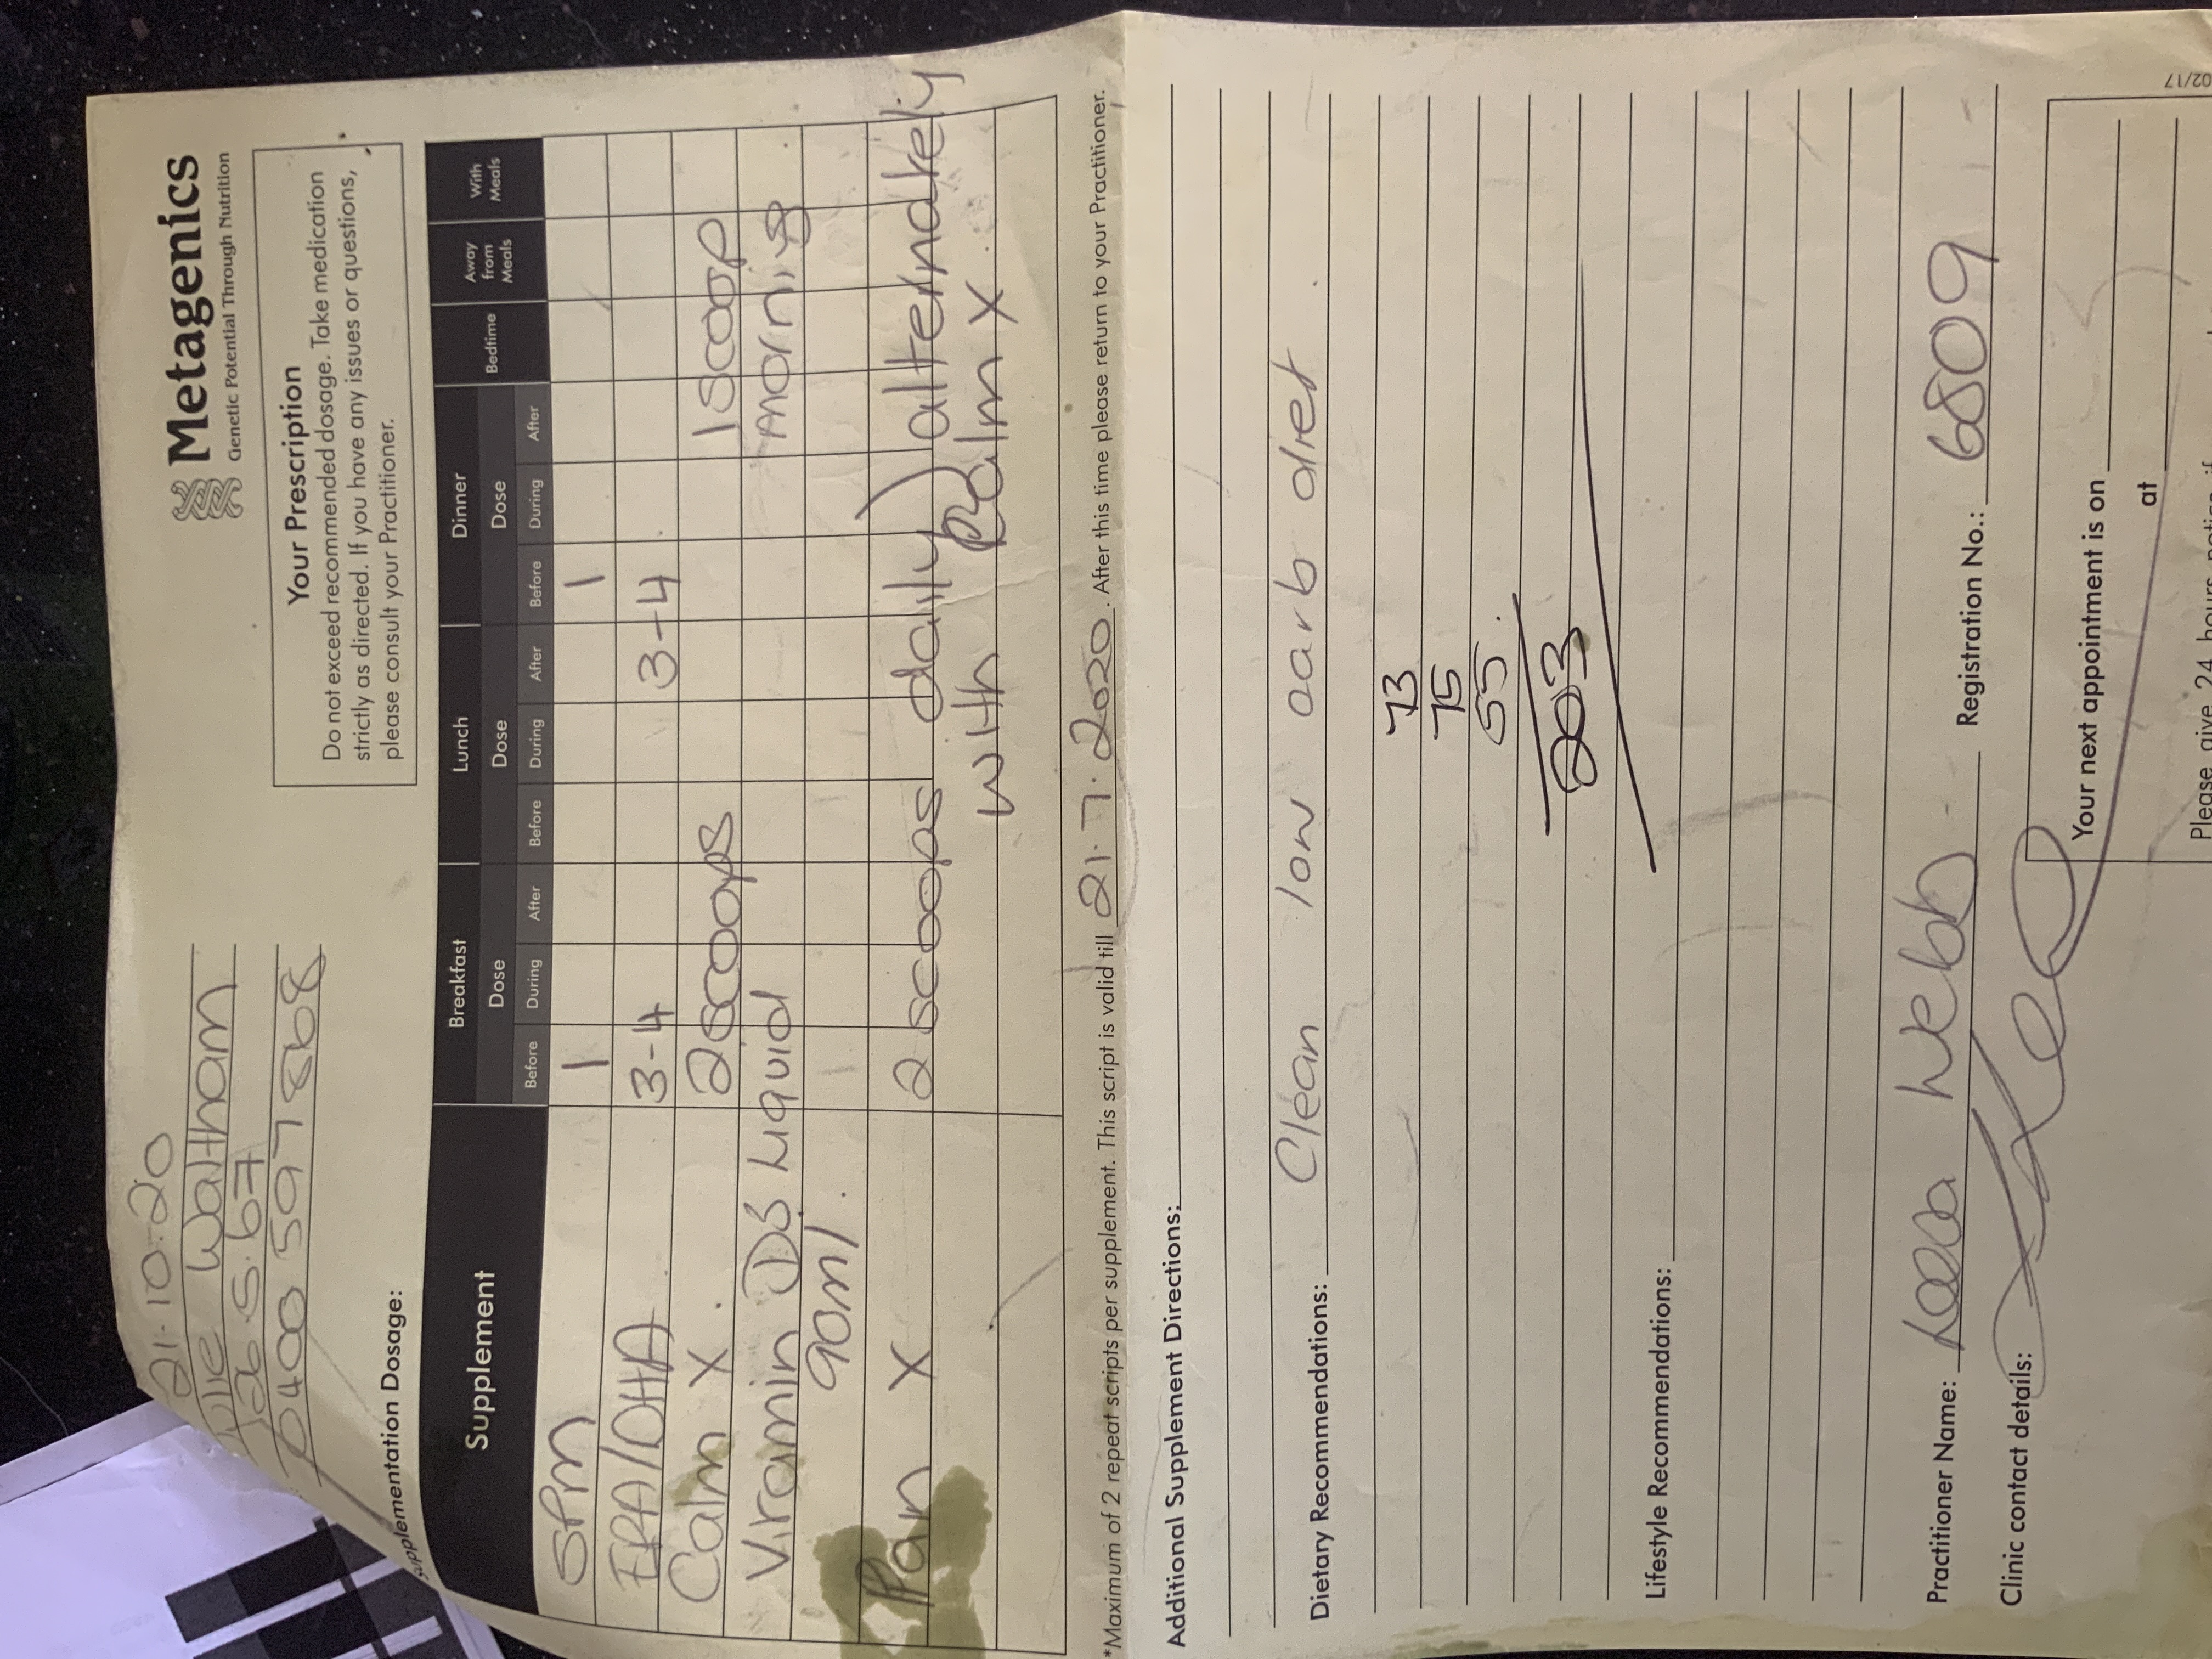 21.10.20
Julie Waltham
26.5.67
0400 597 868
Metagenics
Genetic Potential Through Nutrition
Your Prescription
Do not exceed recommended dosage. Take medication
strictly as directed. If you have any issues or questions,
please consult your Practitioner.
Supplementation Dosage:
Supplement Breakfast Lunch Dinner Bedtime Away from Meals With Meals
Dose Dose Dose
Before During After Before During After Before During After
SPM 1 1
EPA/DHA 3-4 3-4
Calm X. 2 scoops 1 scoop
Viramin D3 Liquid morning
90ml.
Pan X 2 scoops daily) alternately
with Calm X
*Maximum of 2 repeat scripts per supplement. This script is valid till 21.7.2020. After this time please return to your Practitioner.
Additional Supplement Directions:
Dietary Recommendations: Clean low carb diet.
73
75
55.
203
Lifestyle Recommendations:
Practitioner Name: Webb Registration No.: 6809
Clinic contact details:
Your next appointment is on
at
Please give 24 hours notice if
02/17